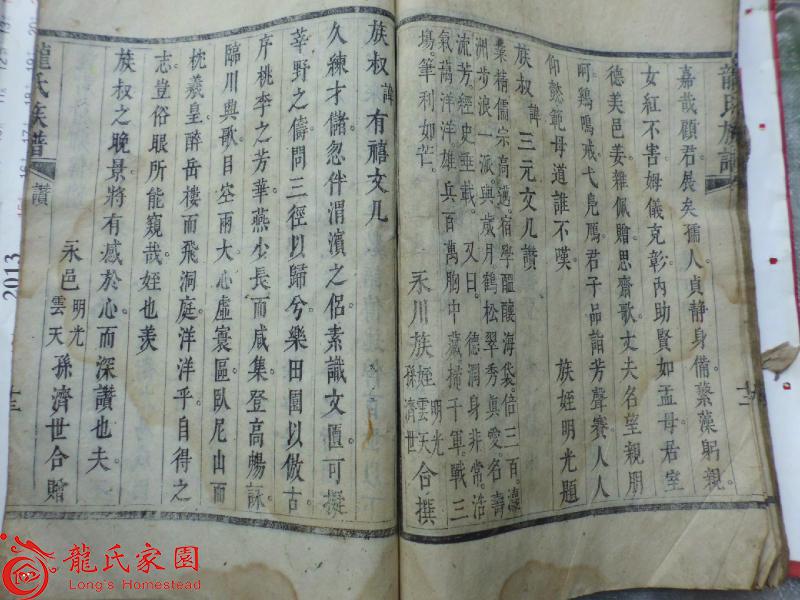 龍氏族譜
嘉哉顧君展矣孺人貞靜身備蘩藻躬親
女紅不害姆儀克彰內助賢如孟母君室
德美邑姜雜佩贈思齋歌丈夫名望親朋
呵鷄鳴戒弋鳬鴈君子品詣芳聲賽人人
仰懿範母道誰不嘆
族姪明光題
族叔諱三元文几讚
業精儒宗高邁宿學醞釀海袋倍三百瀛
洲步浪一派與歲月鶴松翠秀眞愛名壽
流芳經史垂載又曰德潤身非常浩
氣萬洋洋雄兵百萬胸中藏掃千軍戰三
場筆利如芒
永川族姪明光
雲天
孫濟世
合撰
族叔諱有禧文几
久練才儲忽伴渭濱之侶素識文匱可擬
莘野之儔問三徑以歸兮樂田園以傲古
序桃李之芳華燕少長而咸集登高暢詠
臨川興歌目空兩大心虛寰區臥尼山而
枕羲皇醉岳樓而飛洞庭洋洋乎自得之
志豈俗眼所能窺哉姪也羨
族叔之晚景將有感於心而深讚也夫
永邑明光
雲天
孫濟世合贈
龍氏族譜
讚
十三
2013
龍氏家園
Long's Homestead